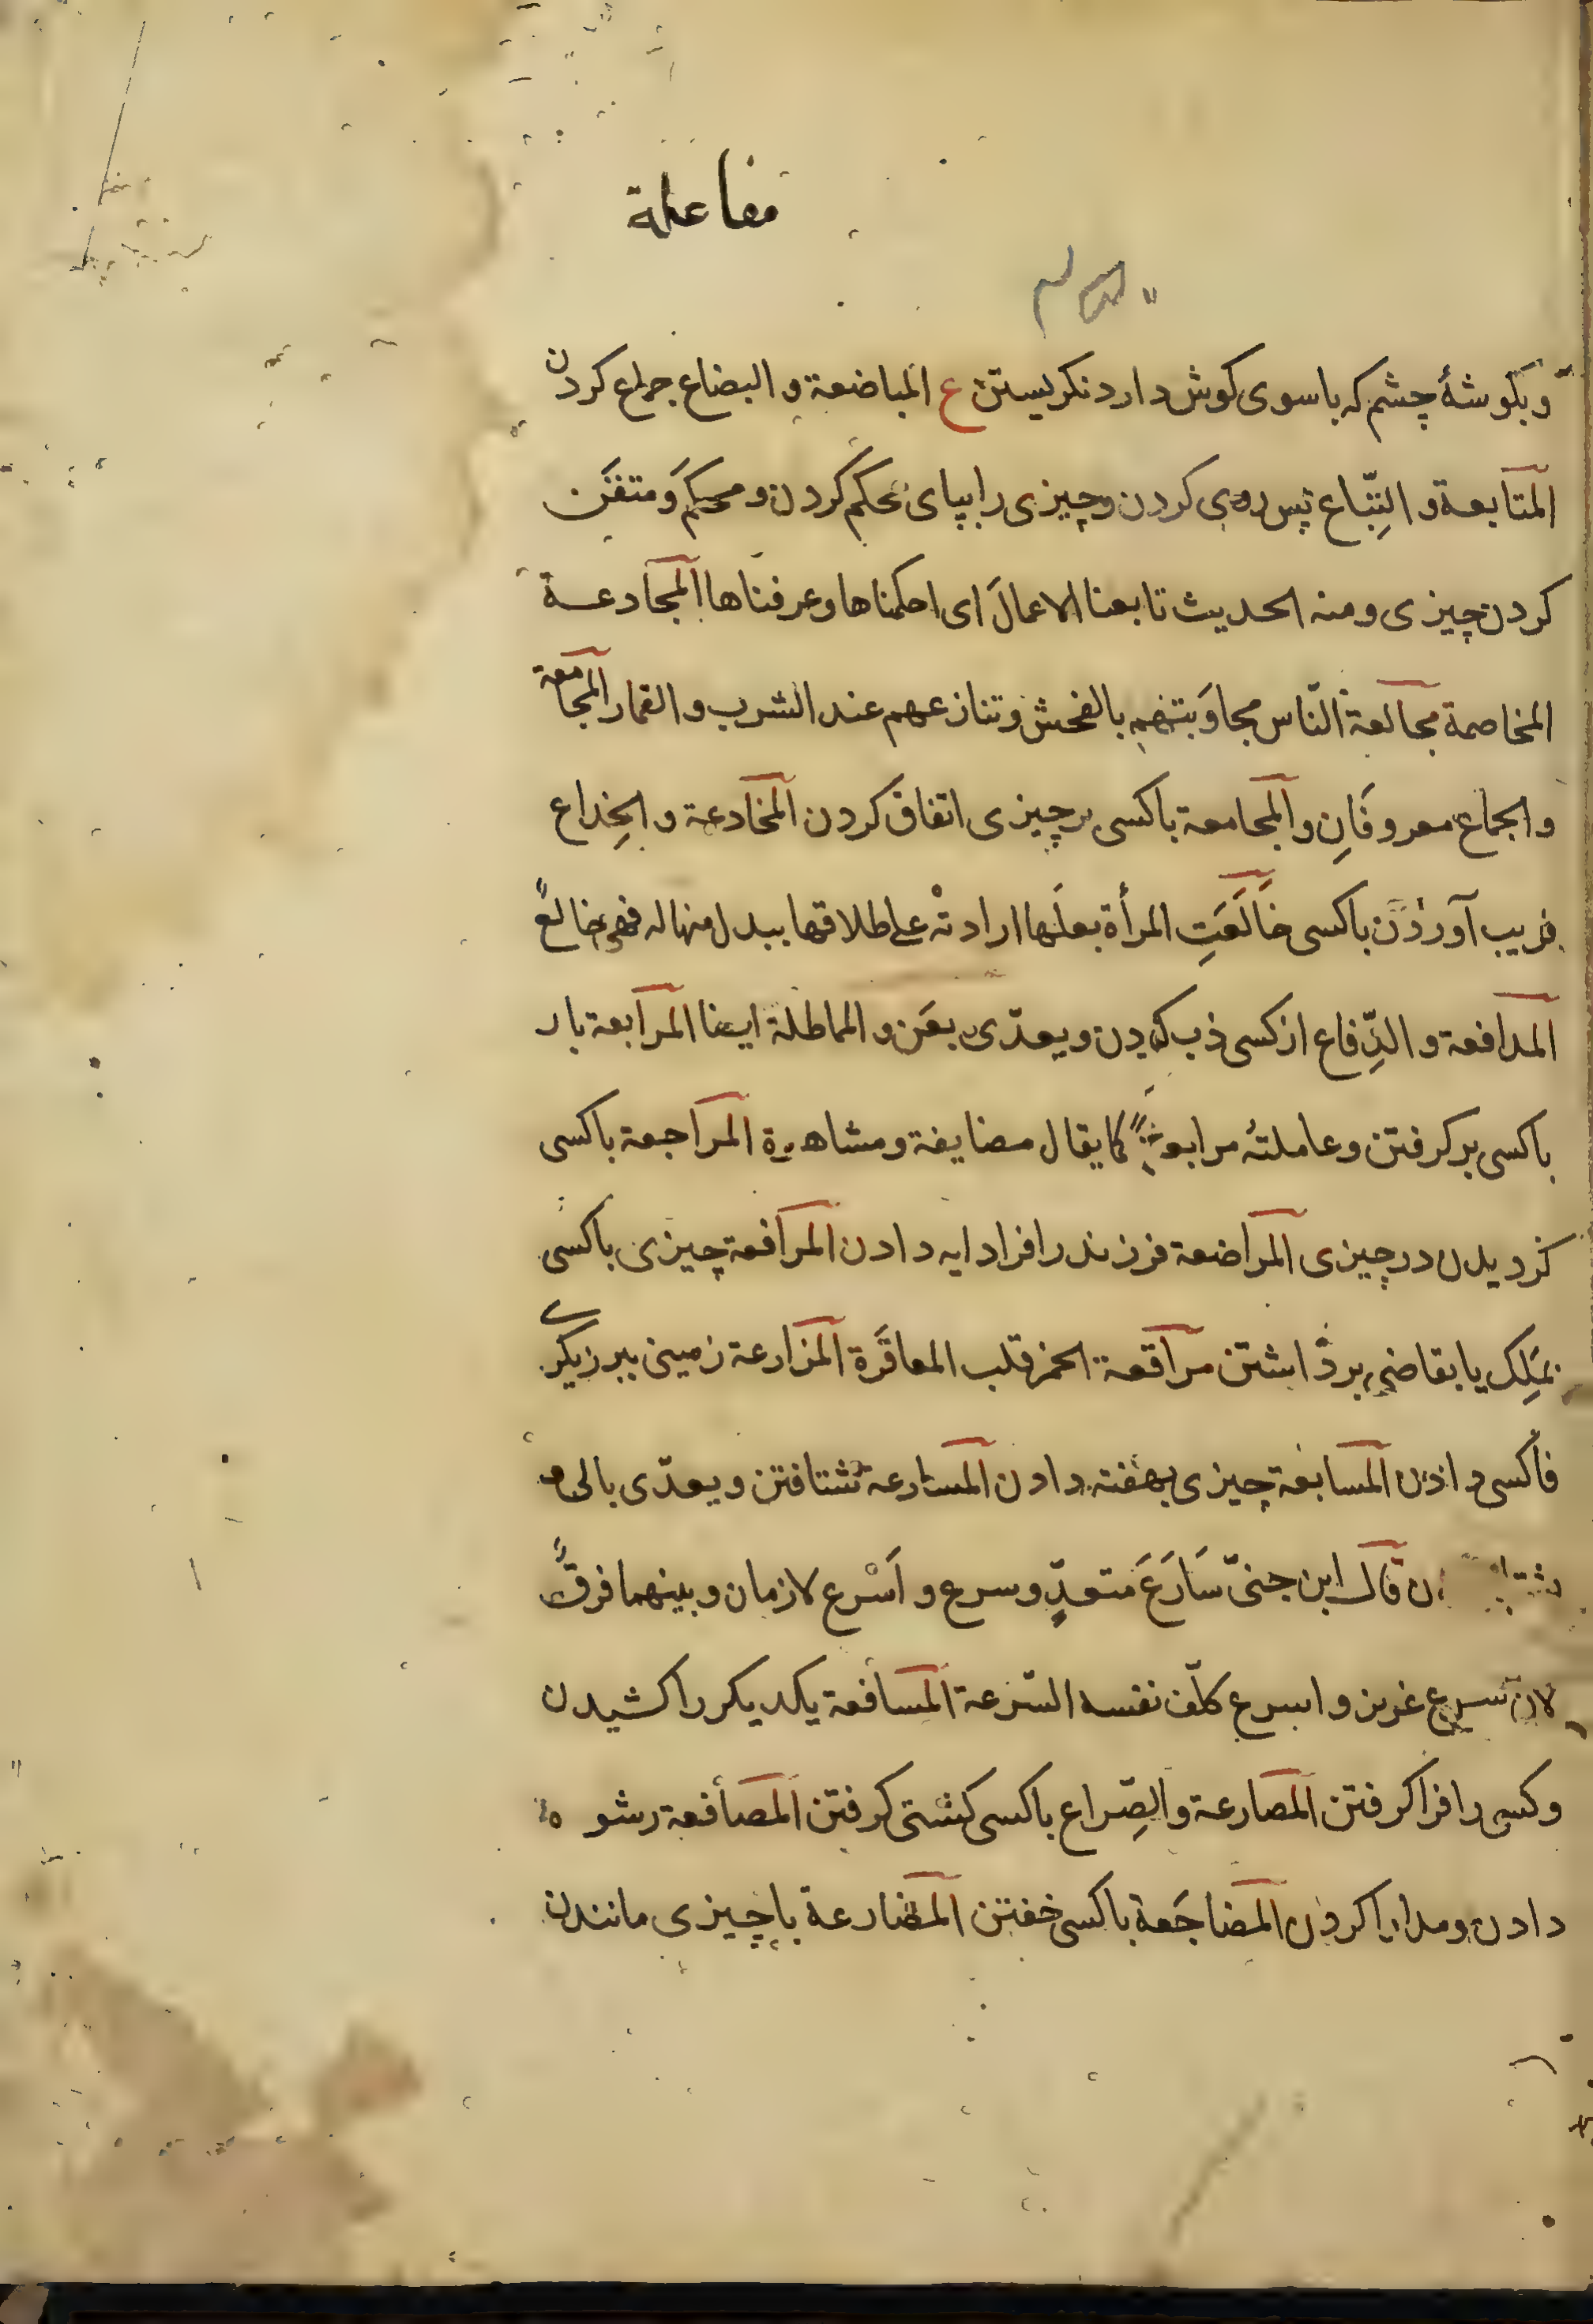 مفاعلة
وبکوشۀ چشم که باسوی کوش دارد نکریستن ع المباضعة و البضاع جماع کردن
المتابعة و التِّباع پس روی کردن و چیزی را بپای محکم کردن و محکم و متقن
کردن چیزی ومنه الحدیث تابعنا الاعمالَ ای احکمناها وعرفناها المجادعة
المخاصمة مجالعة النّاس مجاوَبتهم بالفحش وتنازعهم عند الشرب و القمار المجامعة
والجماع معروفَانِ و المجامعة باکسی بر چیزی اتفاق کردن المخادعة و الخِداع
فریب آوردن باکسی خَالَعَتِ المرأة بعلَها ارادتْه علی طلاقها ببدل منها له فهی خالعٌ
المدافعة و الدِّفاع از کسی ذب کردن ویعدّی بعَن و المماطلة ایضا المرابعة بار
باکسی برکرفتن وعاملته مرابعةً کما یقال مصایفة ومشاهرة المراجعة باکسی
کردیدن در چیزی المراضعة فرزند را فرا دایه دادن المرافعة چیزی باکسی
بمَلِک یا بقاضی برداشتن مراقعة الخمر قلب المعاقَرة المزارعة زمینی ببرزیکری
فاکسی دادن المسابعة چیزی بهفته دادن المسارعة شتافتن ویعدّی بالی
قال ابن جنیّ سَارَعَ متعدٍّ وسرع و اَسْرع لازمان وبینهما فرقٌ
لانّ سرع غریز و اسرع کلّف نفسه السّرعة المسافعة یکدیکر را کشیدن
وکسی را فرا کرفتن المصارعة والصِّراع باکسی کشتی کرفتن المصانعة رشوه
دادن ومدارا کردن المضاجَعة باکسی خفتن المضارعة باچیزی مانندن